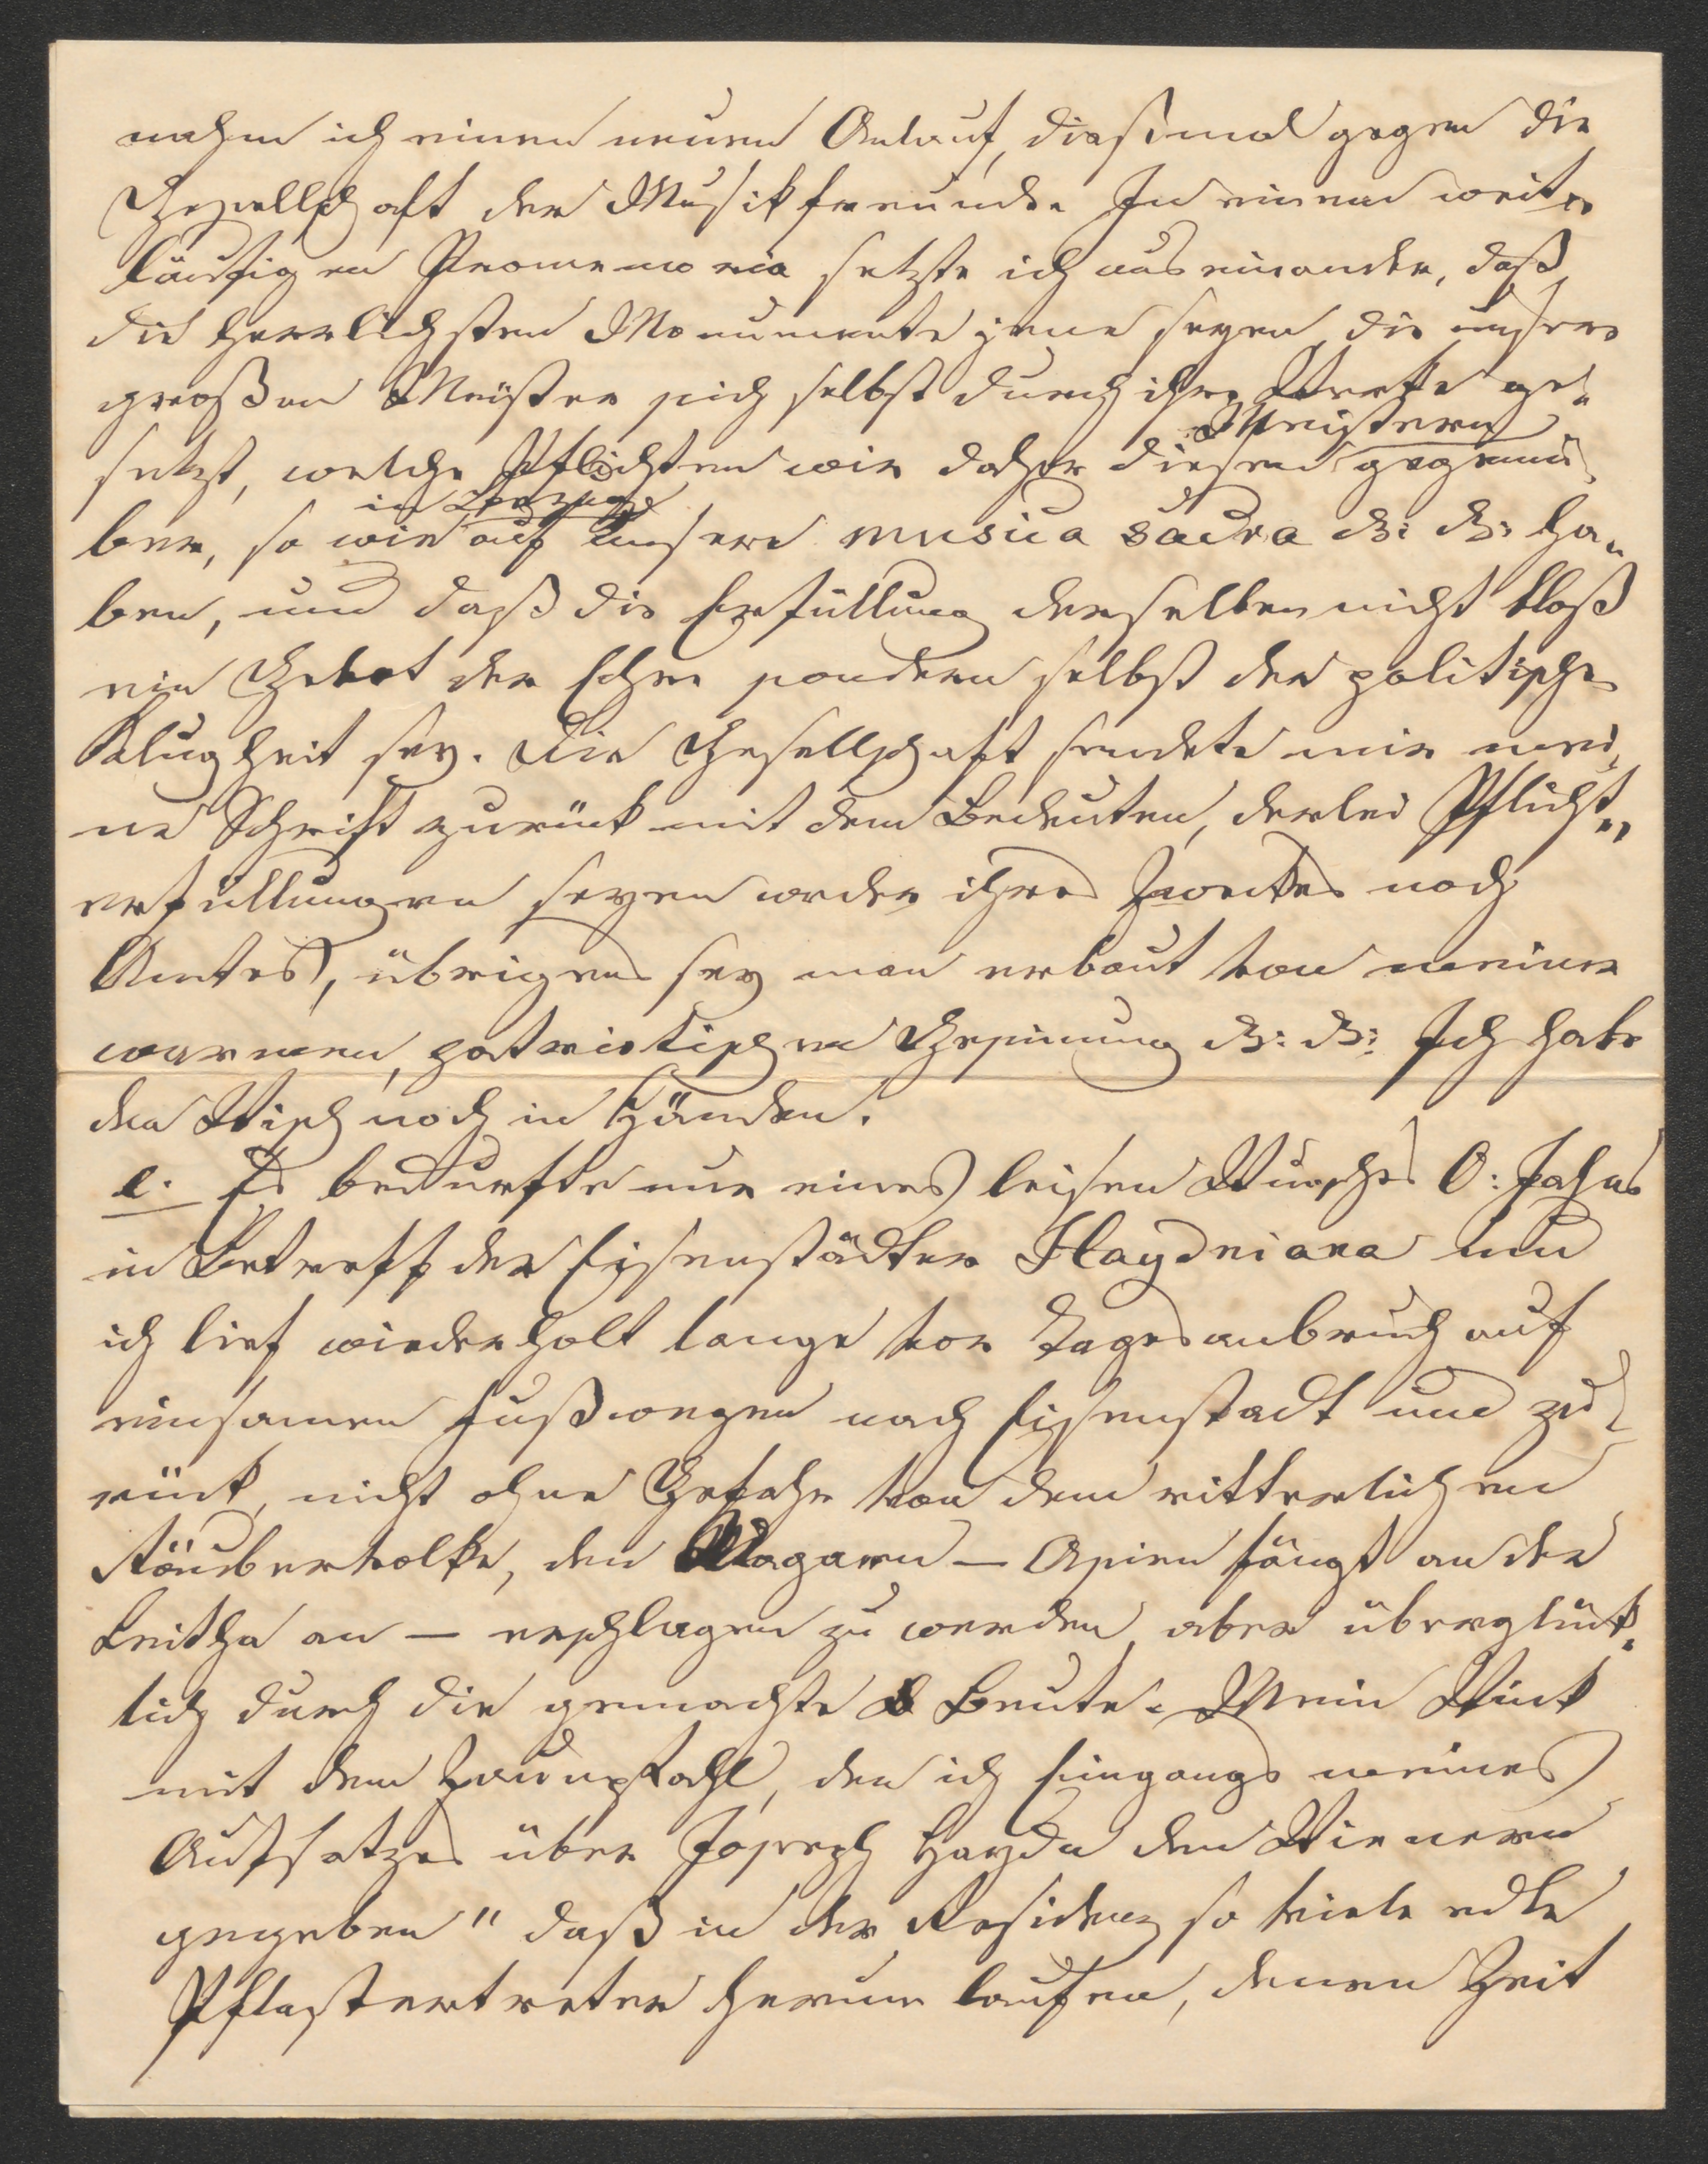 nahm ich einen neuen Anlauf, dießmal gegen die
Gesellschaft der Musikfreunde. In einem weit-
läufigen Promemoria setzte ich auseinander, daß
die herrlichsten Monumente jene seyen, die unsere
großen Meister sich selbst durch ihre Werke ge-
Meistern
setzt, welche Pflichten wir daher diesen gegenü-
in Bezug
ber, so wie auf unsere musica sacra &: &: ha-
ben, und daß die Erfüllung derselben nicht bloß
ein Gebot der Ehre sondern selbst der politischen
Klugheit sey. Die Gesellschaft sendete mir mei-
ne Schrift zurück mit dem Bedeuten, derlei Pflicht-
erfüllungen seyen weder ihres Zweckes noch
Amtes, übrigens sey man erbaut von meiner
warmen, patriotischen Gesinnung &: &: Ich habe
den Wisch noch in Händen.
e. Es bedurfte nur eines leisen Wunsches O: Jahns
in Betreff der Eisenstädter Haydniana und
ich lief wiederholt lange vor Tagesanbruch auf
einsamen Fußwegen nach Eisenstadt und zu-
rück, nicht ohne Gefahr von dem ritterlichen
Räubervolke, den Magyaren — Asien fängt an der
Leitha an — erschlagen zu werden, aber überglück-
lich durch die gemachte Beute. Mein Wink
mit dem Zaunpfahl, den ich Eingangs meines
Aufsatzes über Joseph Haydn den Wienern
gegeben " daß in der Residenz so viele edle
Pflastertreter herum laufen, denen Zeit